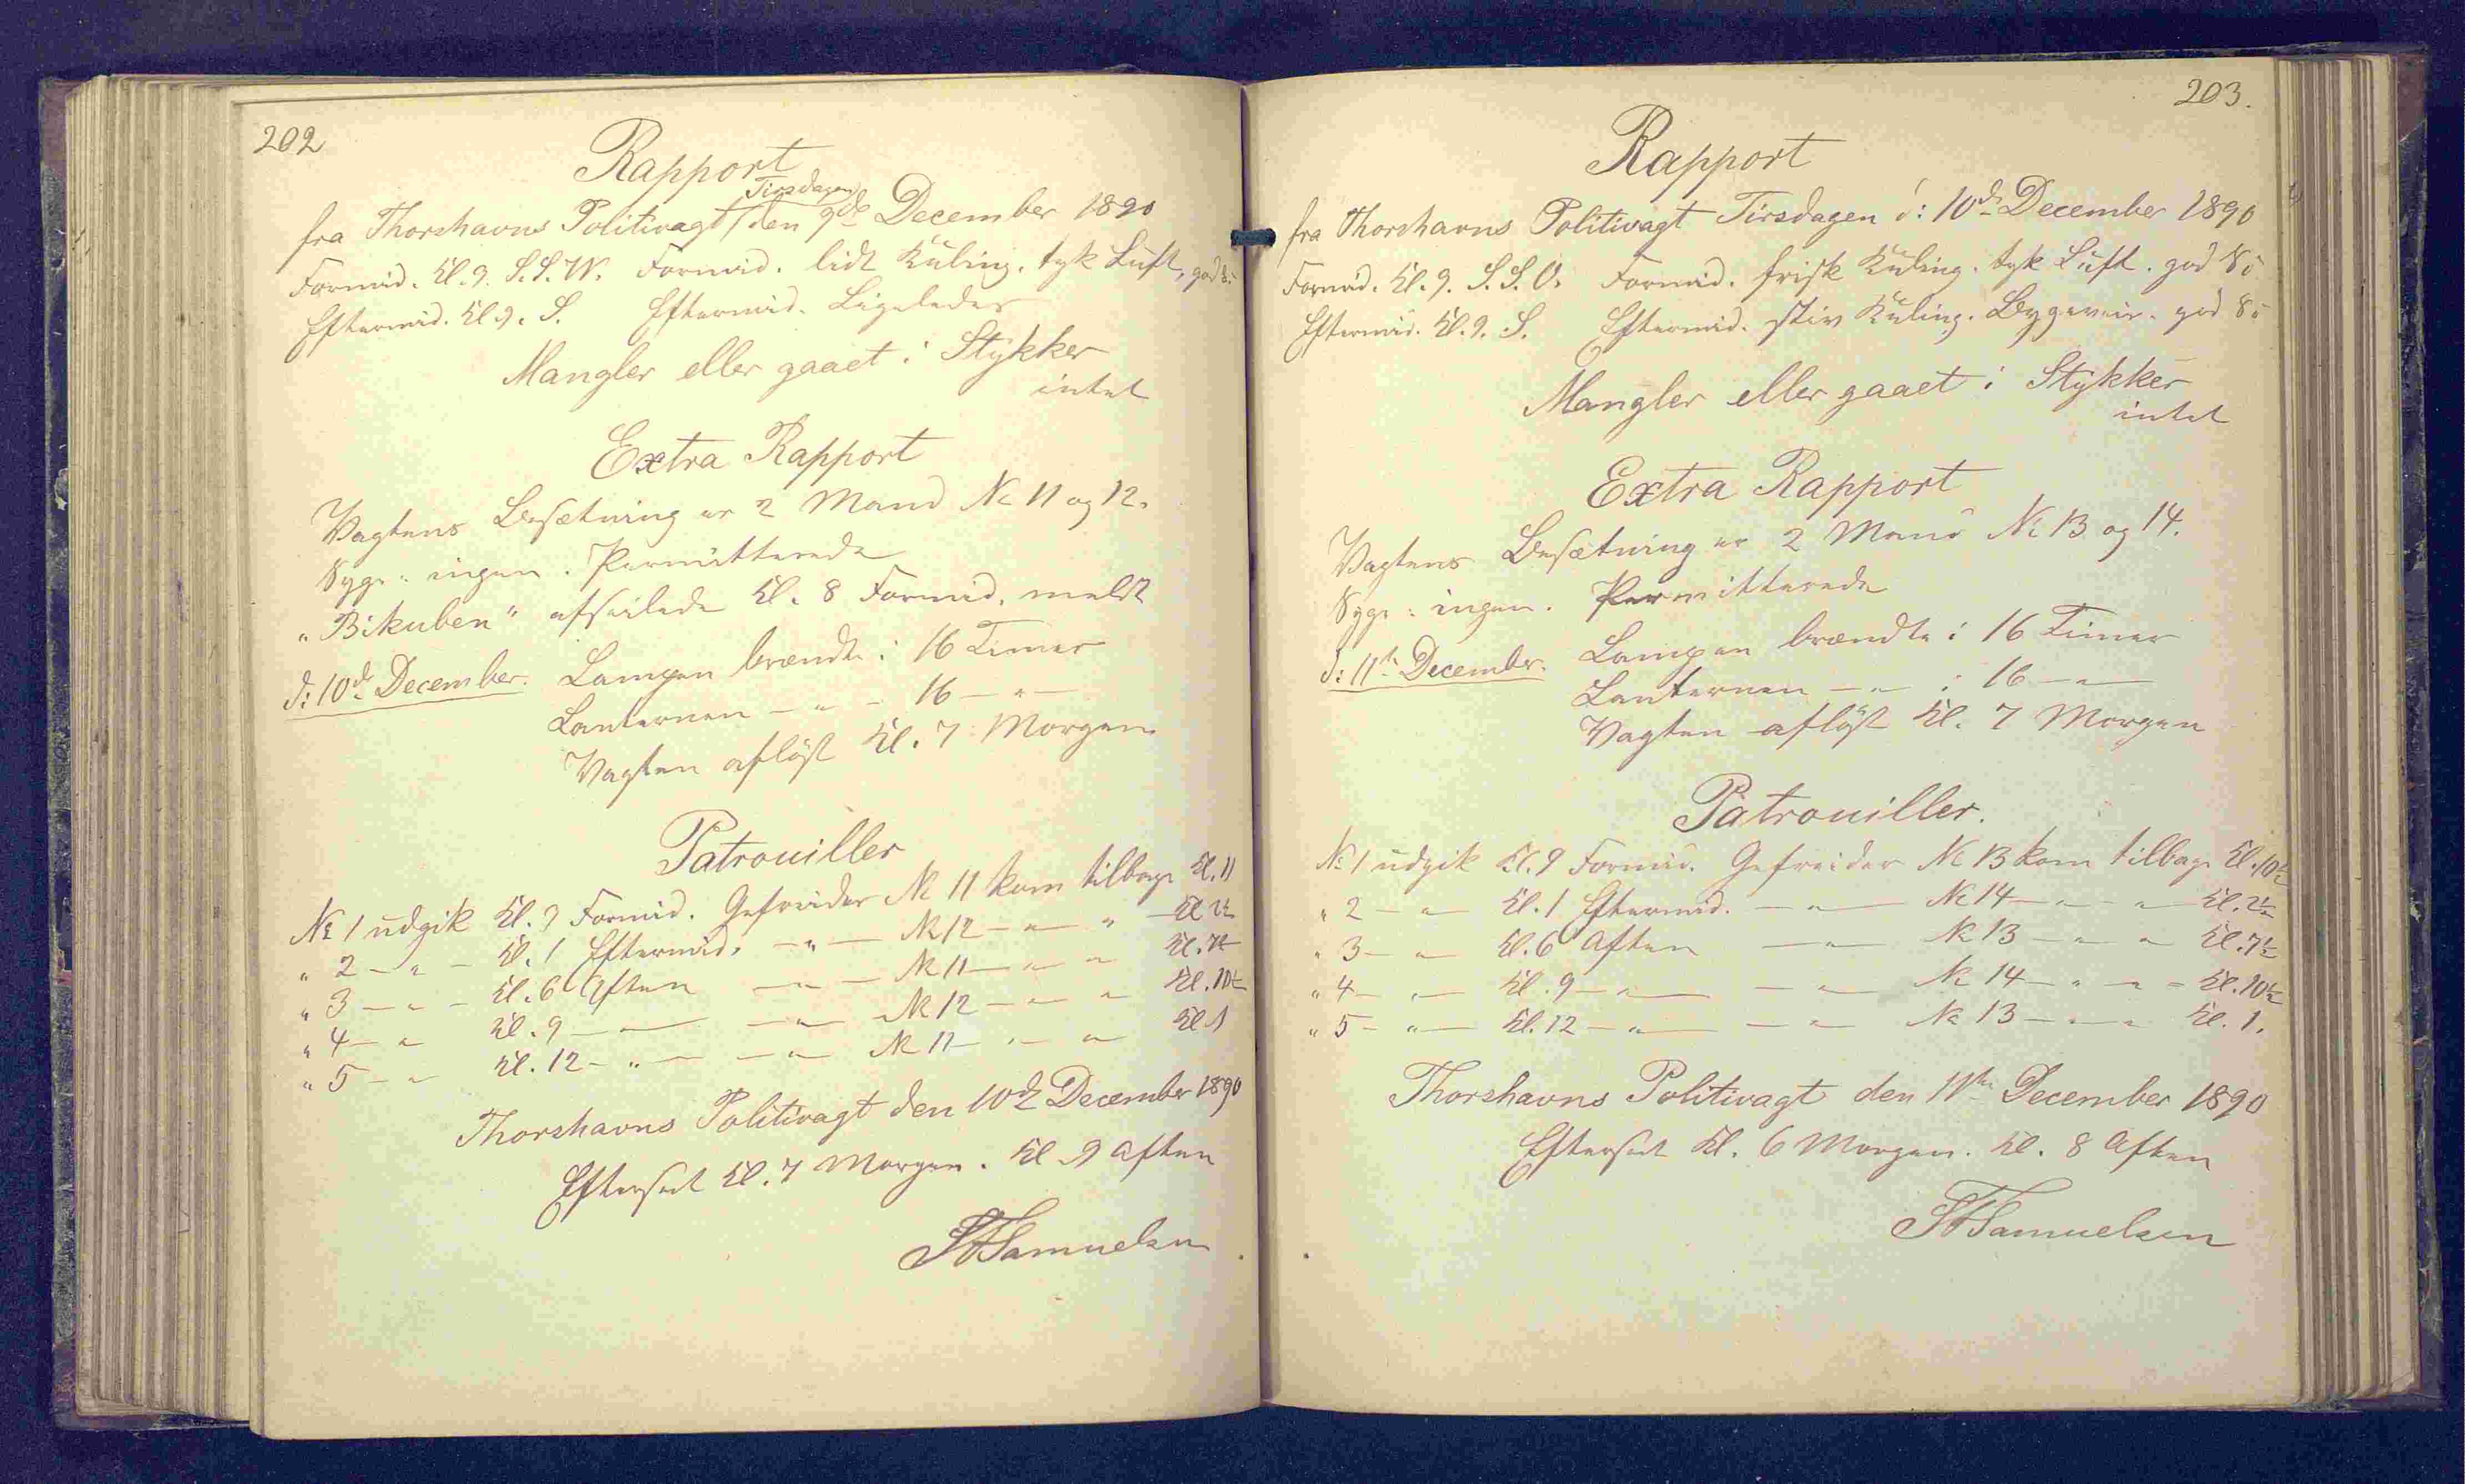 202
Rapport
Tirsdagen
fra Thorshavns Politivagt / den 9de December 1890
Formid. Kl. 9. S.S.W. Formid. lidt Kuling. tyk Luft, god S.
Eftermid. Kl. 9. S. Eftermid. Ligeledes
Mangler eller gaaet i Stykker
intet
Extra Rapport
Vagtens Besætning er 2 Mand № 11 og 12.
Syge: ingen. Permitterede
"Bikuben" afseilede Kl. 8 Formid. meldt
d: 10de December. Lampen brændte i 16 Timer
Lanternen — " — 16 — " —
Vagten aflöst Kl. 7 Morgen
Patrouiller
№ 1 udgik Kl. 9 Formid. Gefreider № 11 kom tilbage Kl. 11
" 2 — " — Kl. 1 Eftermid. — " — № 12 — " — " — Kl. 2½
" 3 — " — Kl. 6 Aften — " — № 11 — " — " Kl. 7½
" 4 — " Kl. 9 — " — — " — № 12 — " — " Kl. 10½
" 5 — " Kl. 12 — " — — " — № 11 — " — " Kl 1
Thorshavns Politivagt den 10de December 1890
Efterseet Kl. 7 Morgen. Kl 9 Aften
Samuelsen
203.
Rapport
fra Thorshavns Politivagt Tirsdagen d: 10de December 1890
Formid. Kl. 9. S.S.O. Formid. frisk Kuling. tyk Luft. god Sö
Eftermid. Kl. 9. S. Eftermid. stiv Kuling. Bygeveir. god Sö
Mangler eller gaaet i Stykker
intet
Extra Rapport
Vagtens Besætning er 2 Mand № 13 og 14.
Syge: ingen. Permitterede
d: 11te December. Lampen brændte i 16 Timer
Lanternen — " — i 16 — " —
Vagten aflöst Kl. 7 Morgen
Patrouiller.
№ 1 udgik Kl. 9 Formid. Gefreider № 13 kom tilbage Kl. 10½
" 2 — " — Kl. 1 Eftermid. — " — № 14 — " — " — Kl. 2½
" 3 — " — Kl. 6 Aften — " — № 13 — " — " Kl. 7½
" 4 — " — Kl. 9 — " — — " — № 14 — " — " — Kl. 10½
" 5 — " — Kl. 12 — " — — " — № 13 — " — " Kl. 1.
Thorshavns Politivagt den 11te December 1890
Efterseet Kl. 6 Morgen. Kl. 8 Aften
Samuelsen